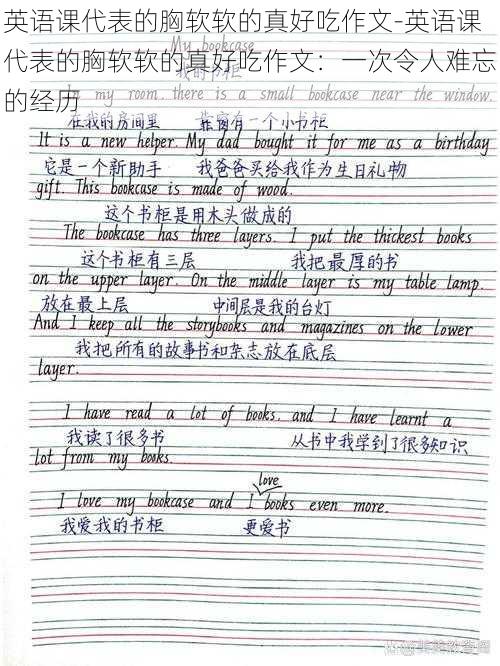 英语课代表的胸软软的真好吃作文-英语课
代表的胸软软的真好吃作文：一次令人难忘
的经历
My bookcase
我的书柜
In my room, there is a small bookcase near the window.
在我的房间里 靠窗有一个小书柜
It is a new helper. My dad bought it for me as a birthday
它是一个新助手 我爸爸买给我作为生日礼物
gift. This bookcase is made of wood.
这个书柜是用木头做成的
The bookcase has three layers. I put the thickest books
这个书柜有三层 我把最厚的书
on the upper layer. On the middle layer is my table lamp.
放在最上层 中间层是我的台灯
And I keep all the storybooks and magazines on the lower
我把所有的故事书和杂志放在底层
layer.
I have read a lot of books, and I have learnt a
我读了很多书 从书中我学到了很多知识
lot from my books.
love
I love my bookcase and I books even more.
我爱我的书柜 更爱书